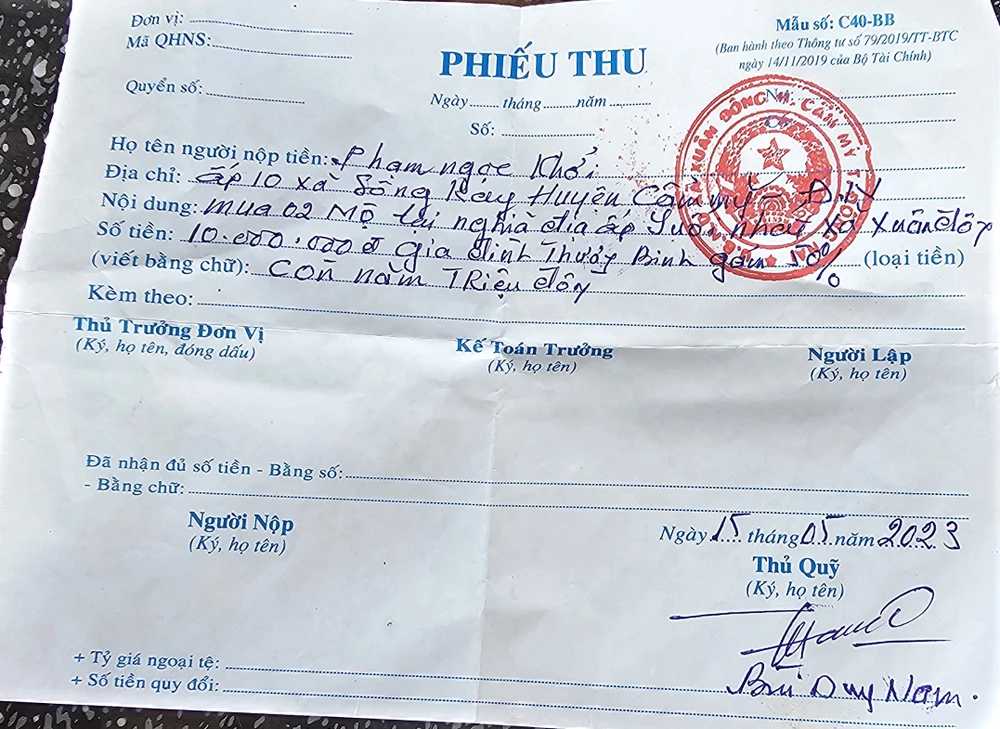 Đơn vị:
Mã QHNS:
Quyển số:
Mẫu số: C40-BB
(Ban hành theo Thông tư số 79/2019/TT-BTC
ngày 14/11/2019 của Bộ Tài Chính)
PHIẾU THU
Ngày tháng năm
Số:
Nợ:
Họ tên người nộp tiền: Phạm ngọc Khởi
Địa chỉ: ấp 10 xã Sông Ray Huyện Cẩm mỹ - Đ
Nội dung: mua 02 Mộ tại nghĩa địa ấp Suối nhát xã Xuân đông
Số tiền: 10.000.000đ gia đình Thuộc Bình giảm 50% (loại tiền)
(viết bằng chữ): Còn năm TRiệu đồng
Kèm theo:
Thủ Trưởng Đơn Vị
(Ký, họ tên, đóng dấu)
Kế Toán Trưởng
(Ký, họ tên)
Người Lập
(Ký, họ tên)
Đã nhận đủ số tiền - Bằng số:
- Bằng chữ:
Người Nộp
(Ký, họ tên)
Ngày 15 tháng 05 năm 2023
Thủ Quỹ
(Ký, họ tên)
Bùi Duy Nam.
+ Tỷ giá ngoại tệ:
+ Số tiền quy đổi:
XUÂN ĐÔNG H. CẨM MỸ T.